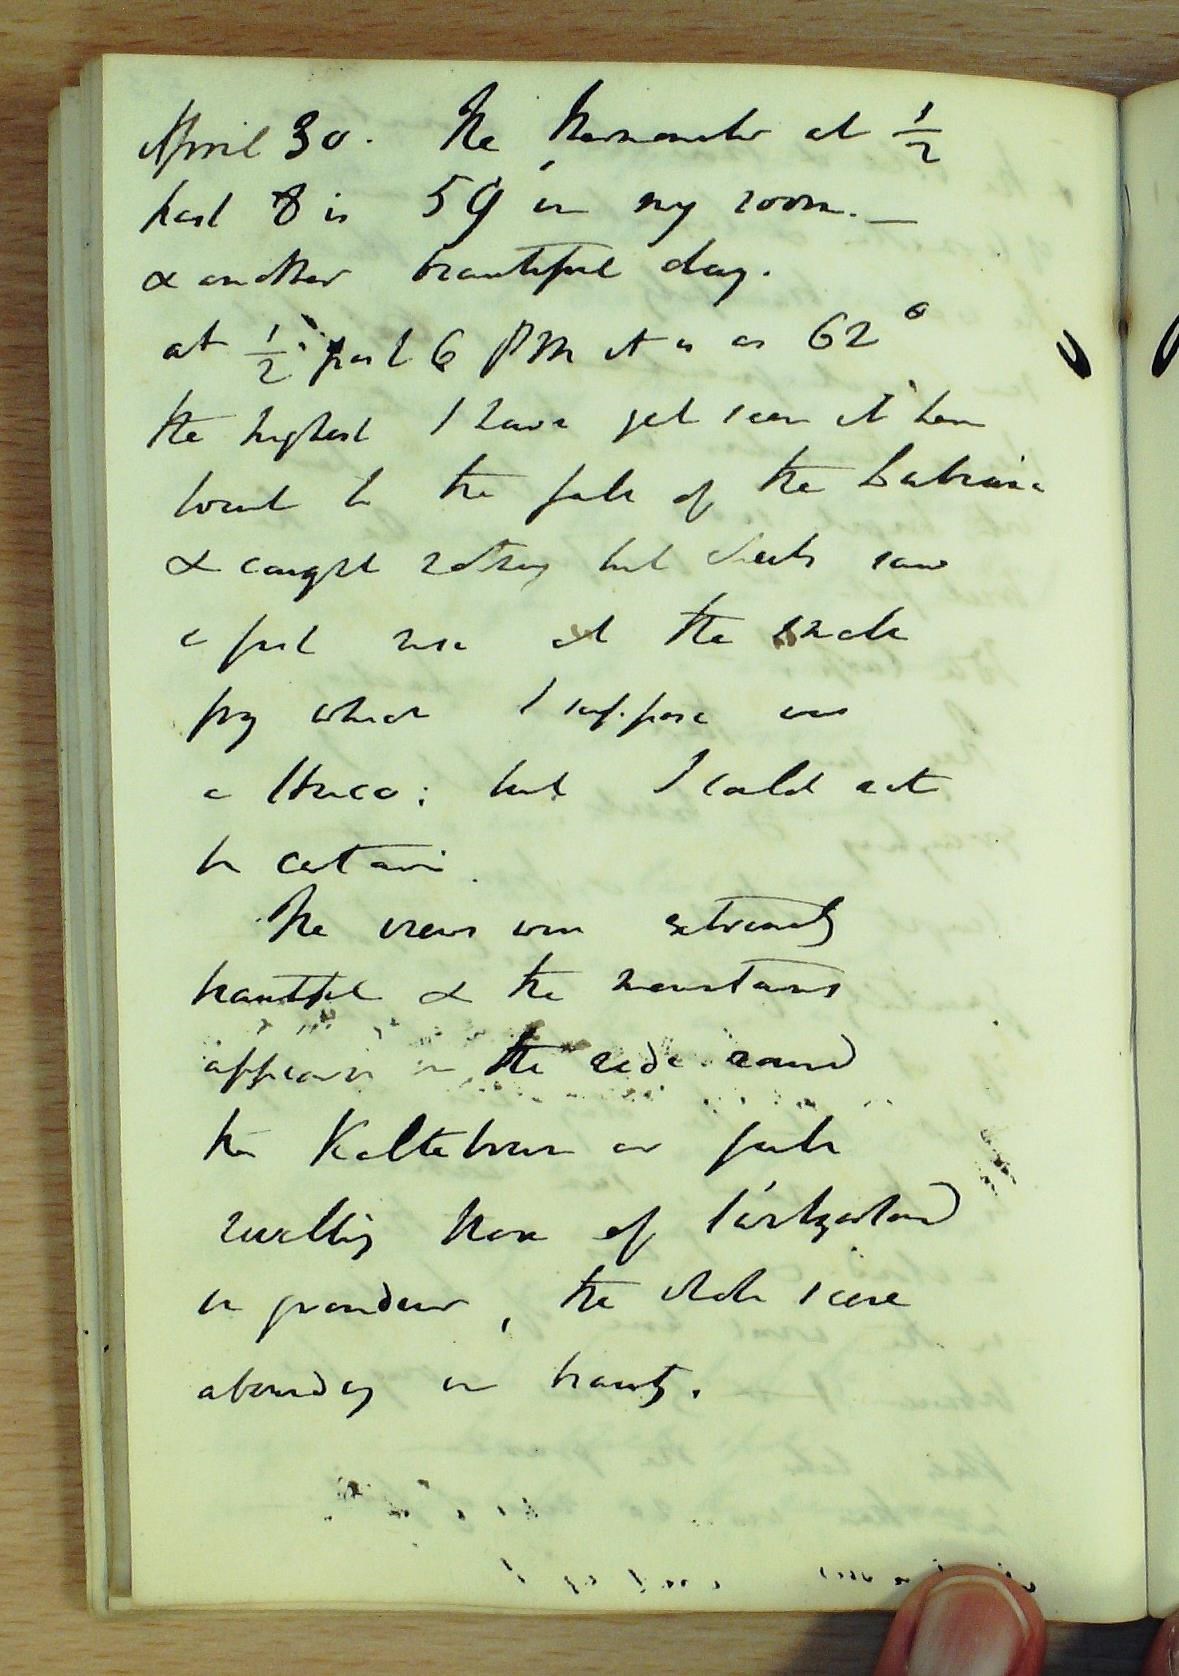 April 30. The Thermometer at 1/2
past 8 is 59 in my room. _
& another beautiful day.
at 1/2 past 6 PM it is as 62°
the highest I have yet seen it here
went to the falls of the Sabrina
& caught nothing but chubs saw
a fish rise at the snale
fry which I suppose was
a Huco; but I could not
be certain.
The views were extremely
beautiful & the mountains
appear in the side round
the Kaltebrun or
swelling those of Switzerland
in grandeur, the whole scene
abounding in beauty.